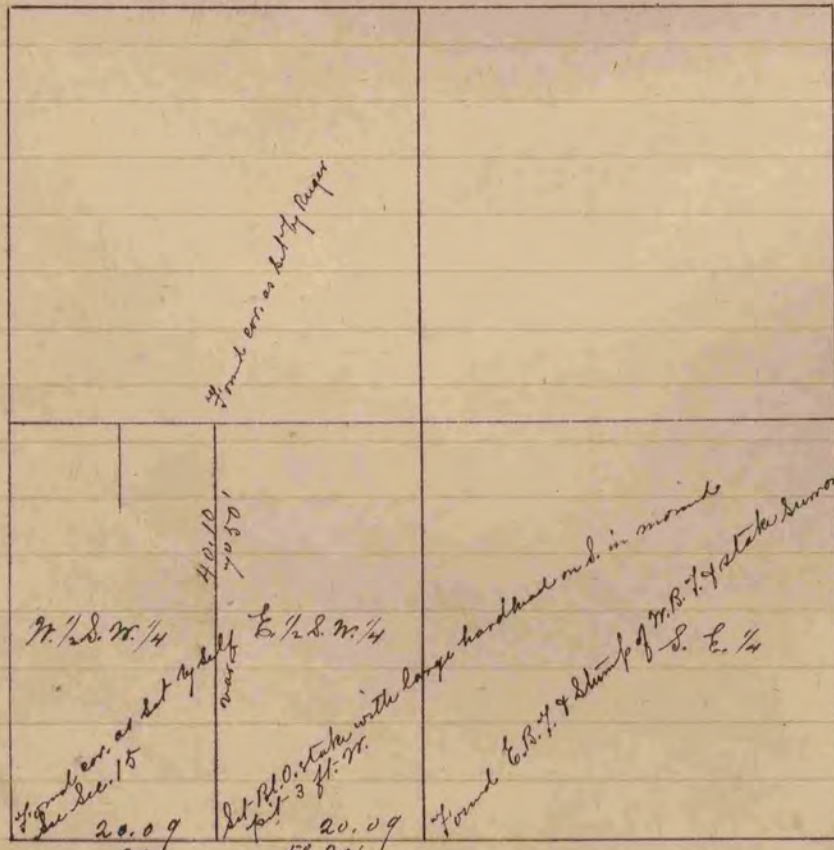 Found cor. as Set by Ruger
40.10
var. 7°50'
W. 1/2 S. W. 1/4
E. 1/2 S. W. 1/4
S. E. 1/4
Found cor. as Set by Self
See Sec. 15
Set Bl. O. stake with large hardhead on S. in mound
pit 3 ft. W.
Found E.B.T. & Stump of W.B.T. & stake
20.09
20.09